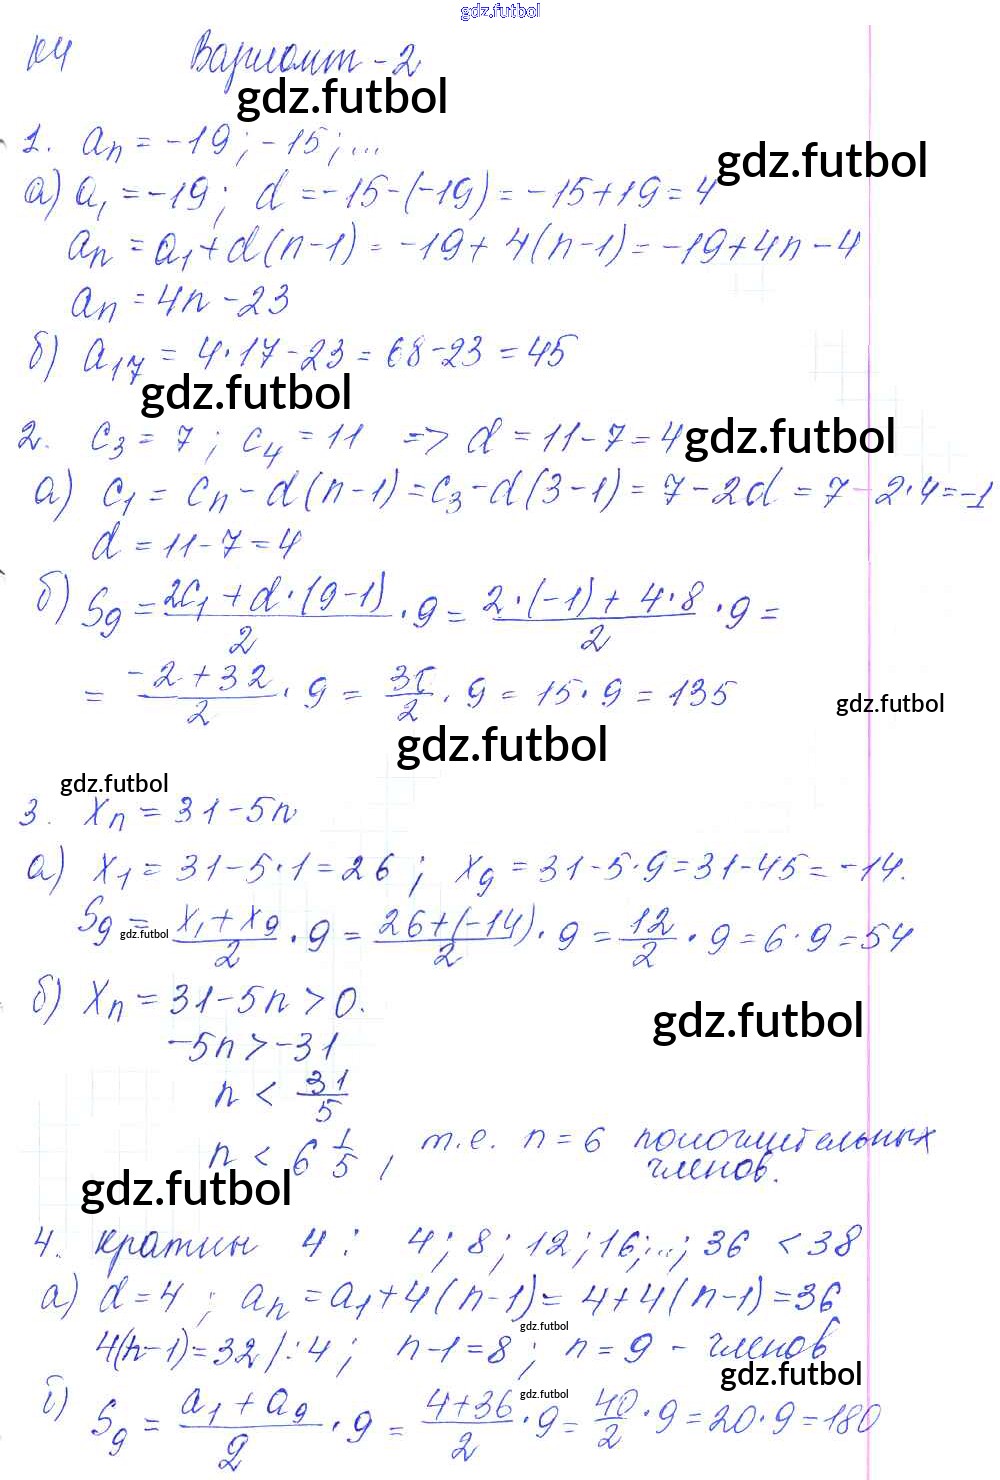 gdz.futbol
К4 Вариант - 2
gdz.futbol
1. aₙ = -19; -15; ...
gdz.futbol
а) a₁ = -19; d = -15-(-19) = -15+19 = 4
aₙ = a₁ + d(n-1) = -19 + 4(n-1) = -19+4n-4
aₙ = 4n - 23
б) a₁₇ = 4·17-23 = 68-23 = 45
gdz.futbol
2. c₃ = 7; c₄ = 11 => d = 11-7 = 4
gdz.futbol
а) c₁ = cₙ - d(n-1) = c₃ - d(3-1) = 7-2d = 7-2·4 = -1
d = 11-7 = 4
б) S₉ = (2c₁ + d·(9-1))/2 · 9 = (2·(-1) + 4·8)/2 · 9 =
= (-2+32)/2 · 9 = 30/2 · 9 = 15·9 = 135
gdz.futbol
gdz.futbol
gdz.futbol
3. xₙ = 31-5n
а) x₁ = 31-5·1 = 26; x₉ = 31-5·9 = 31-45 = -14.
S₉ = (x₁+x₉)/2 · 9 = (26+(-14))/2 · 9 = 12/2 · 9 = 6·9 = 54
gdz.futbol
б) xₙ = 31-5n > 0.
gdz.futbol
-5n > -31
n < 31/5
n < 6 1/5, т.е. n = 6 положительных
членов.
gdz.futbol
4. кратны 4: 4; 8; 12; 16; ...; 36 < 38
а) d = 4; aₙ = a₁ + 4(n-1) = 4+4(n-1) = 36
gdz.futbol
4(n-1) = 32 /:4; n-1 = 8; n = 9 - членов
gdz.futbol
б) S₉ = (a₁+a₉)/2 · 9 = (4+36)/2 · 9 = 40/2 · 9 = 20·9 = 180
gdz.futbol